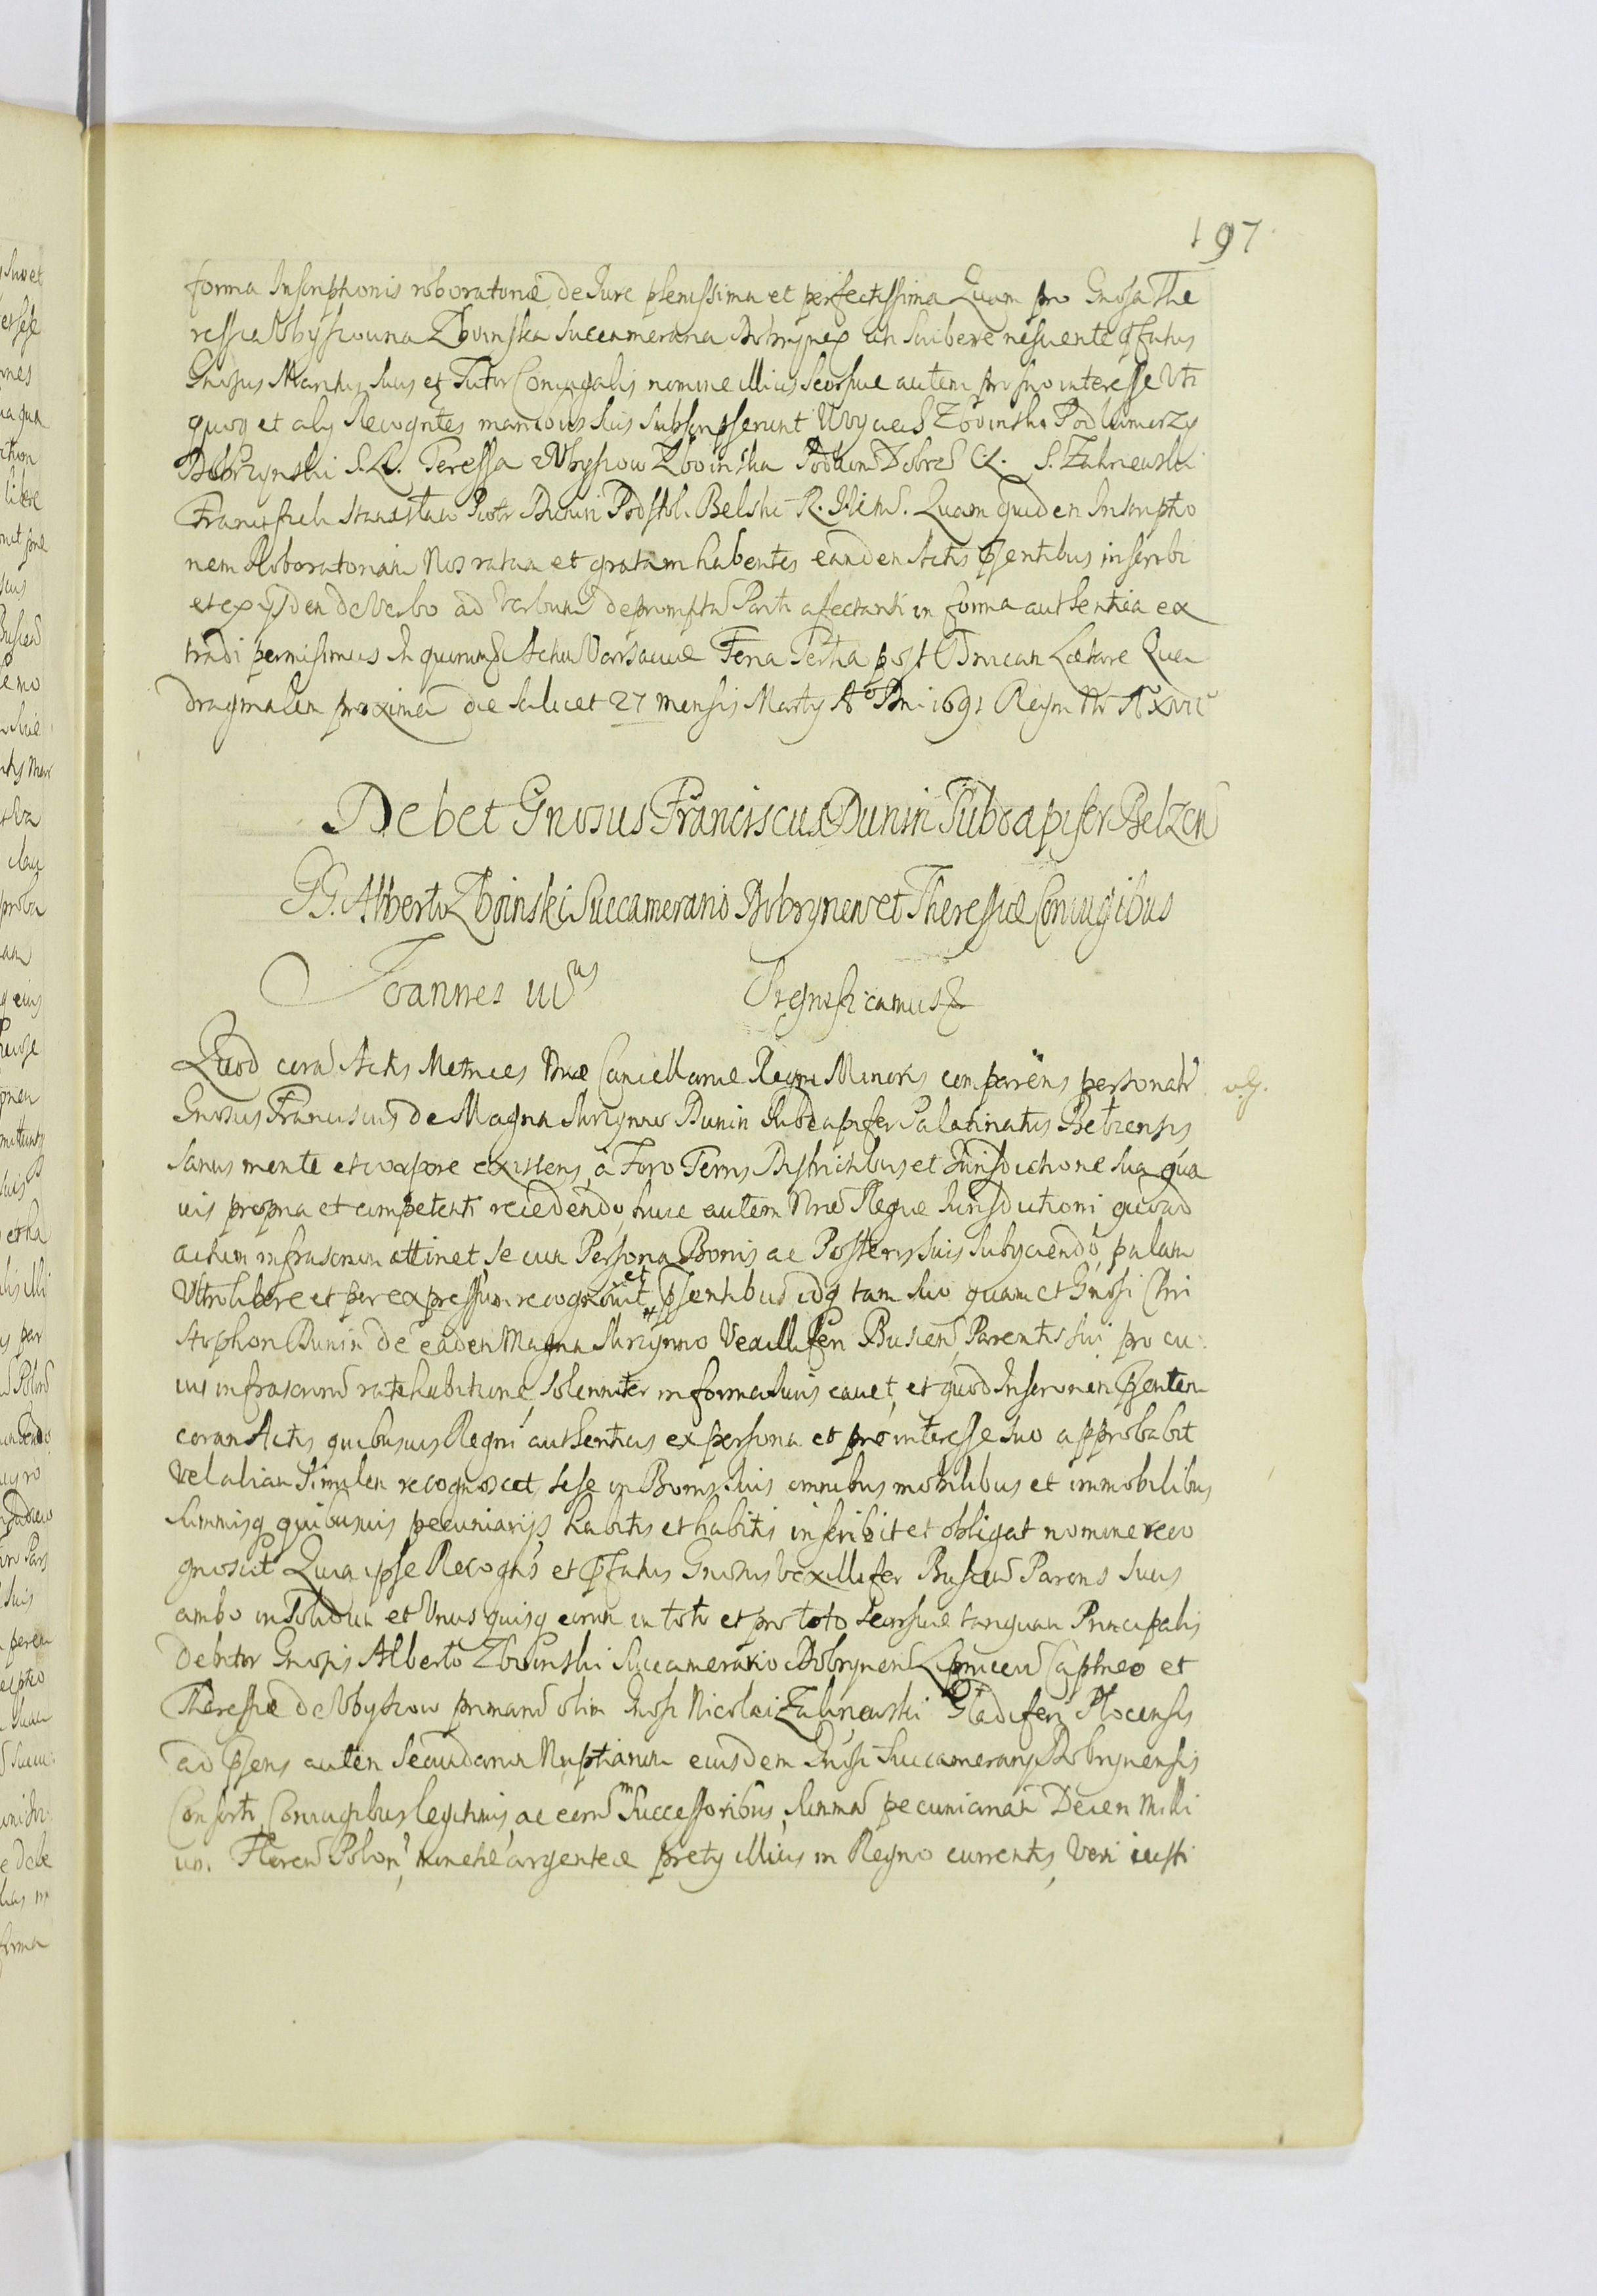 197
forma Inscriptionis roboratoriæ de Iure plenissima et perfectissima Quam pro Gnosa The
ressia Zboinska Succamerana scribere nesciente pfatus
Gnosus Maritus suus et Tutor Coniugalis nomine illius seorsive autem pro suo interesse Uti
quoq et alij Recogntes manibus suis subscripserunt Woyciech Zboinski Podkomorzy
Dobrzynski S. L. Teressa Zboinska S. Zalinewski
Francischek Stanisław Piotr Dunin Podstoli Belski Quam quidem Inscriptio
nem Roboratoriam Nos ratam et gratam habentes eandem Actis psentibus inscribi
et ex ijsdem de Verbo ad Verbum depromptã Parti afectanti in forma authentica ex
tradi permisimus In quorum Actu Varsauiæ Feria Tertia post Dnicam Lætare Qua
dragmalem proxima die scilicet 27 mensis Martij Ao Dni 1691 Regni Nr A XVII
Debet Gnosus Franciscus Dunin Subdapifer Belzen
GG. Alberto Zboinski Succamerario Dobrynen et Theressiæ Coniugibus
Joannes III us Significamus &
Quod corã Actis Metrices Nræ Cancellariæ Regni Minoris comparens personalr
Gnosus Franciscus de Magna Skrzynno Dunin Subdapifer Palatinatus Belzensis
sanus mente et corpore existens, à Foro Terris Districtibus et Iurisdictione sua qua
uis propria et competenti recedendo, huic autem Nræ Regiæ Iurisdictioni quoad
actum infrascrum attinet, se cum Persona Bonis ac Posteris suis subijciendo, palam
Vltro libere et per expressum recognouit et psentibus idq tam suo quam et Gnosi Chri
stophori Dunin de eadem Magna Skrzynno Vexilliferi Buscen Parentis sui pro cu
ius infrascrorũ ratihabitione, solenniter in forma Iuris cauet, et quod Inscronem psentem
coram Actis quibusuis Regni authenticis ex persona et pro interesse suo approbabit
Vel aliam similem recognoscet, sese in Bonis suis omnibus mobilibus et immobilibus
summisq quibusuis pecuniarijs habitis et habitis inscribit et obligat nomine reco
gnoscit Quia ipse Recogns et pfatus Gnosus Vexillifer Buscen Parens suus
ambo in solidum et Vnusquisq eorum in toto et pro toto seorsiue tanquam Principalis
Debitor Gnosis Alberto Zboinski Succamerario Dobrynen Capitneo et
Theressiæ de primarũ olim Gnosi Nicolai Zalinewski Gladiferi Plocensis
ad psens autem secundarum Nuptiarum eiusdem Gnosi Succamerarij Dobrynensis
Consorti, Coniugibus legitimis, ac eorũ m Successoribus, summã pecuniariam Decem Milli
um Floren Polon, monetæ argenteæ pretij illius in Regno currentis, Veri iusti